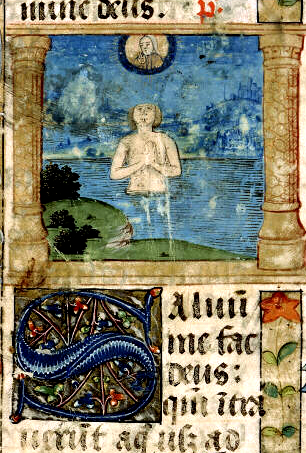 mine deus. p.
Saluū
me fac
deus:
qm̄ ītra
uerūt aq̄ usqꝫ ad